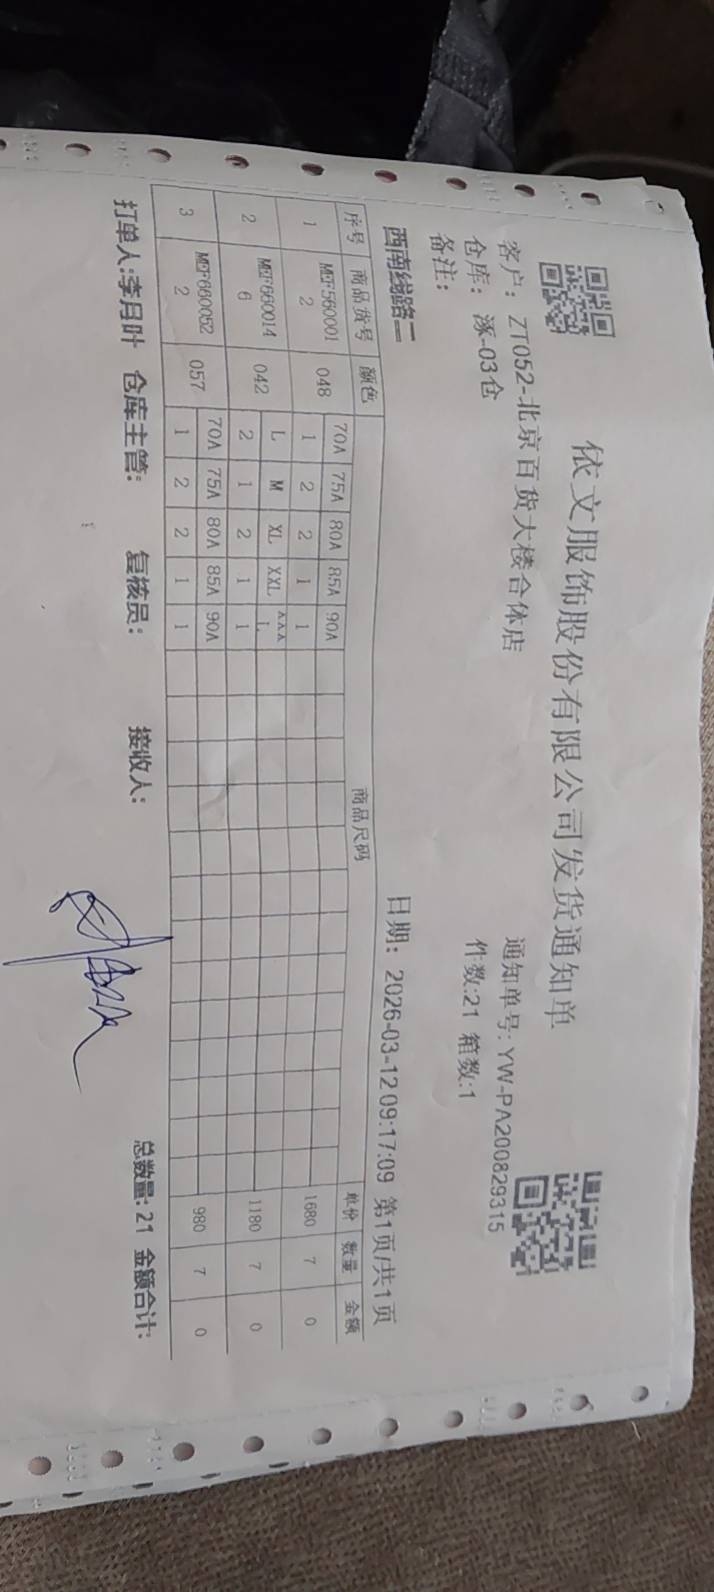 依文服饰股份有限公司发货通知单
客户：ZT052-北京百货大楼合体店 通知单号:YW-PA200829315
仓库：涿-03仓 件数:21 箱数:1
备注：
西南线路二 日期：2026-03-12 09:17:09 第1页/共1页
序号 商品货号 颜色 商品尺码 单价 数量 金额
70A 75A 80A 85A 90A
1 MEF5600012 048 1 2 2 1 1 1680 7 0
L M XL XXL XXXL
2 MEF6600146 042 2 1 2 1 1 1180 7 0
70A 75A 80A 85A 90A
3 MEF6600522 057 1 2 2 1 1 980 7 0
打单人:李月叶 仓库主管: 复核员: 接收人: 总数量:21 金额合计: